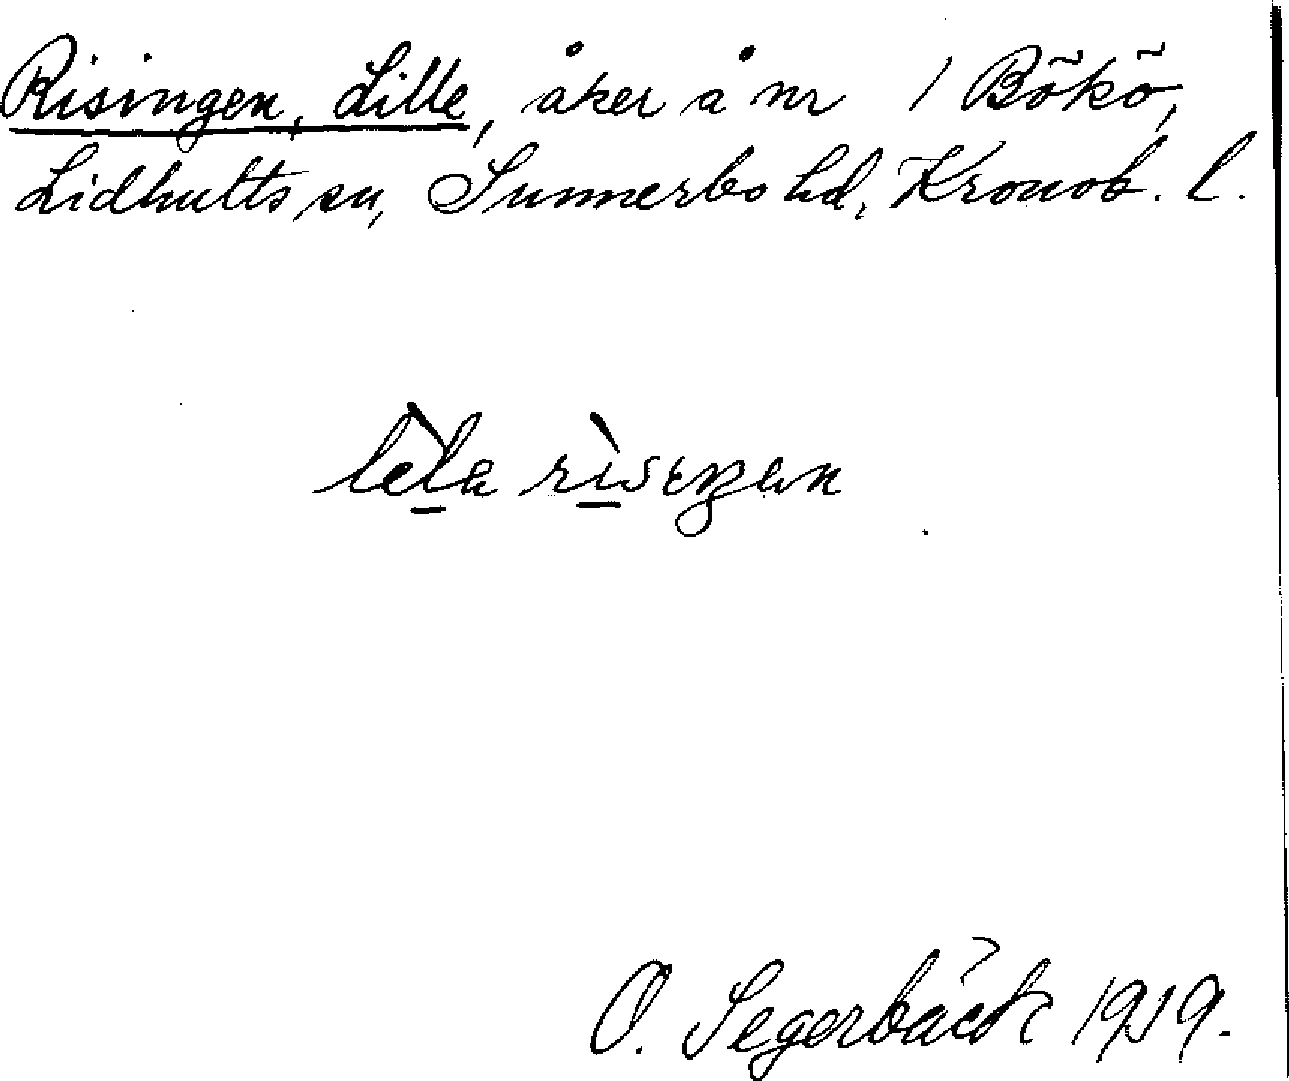 Risingen, Lille, åker å nr 1 Bökö,
Lidhults sn, Sunnerbo hd, Kronob. l.
O. Segerbäck 1919.